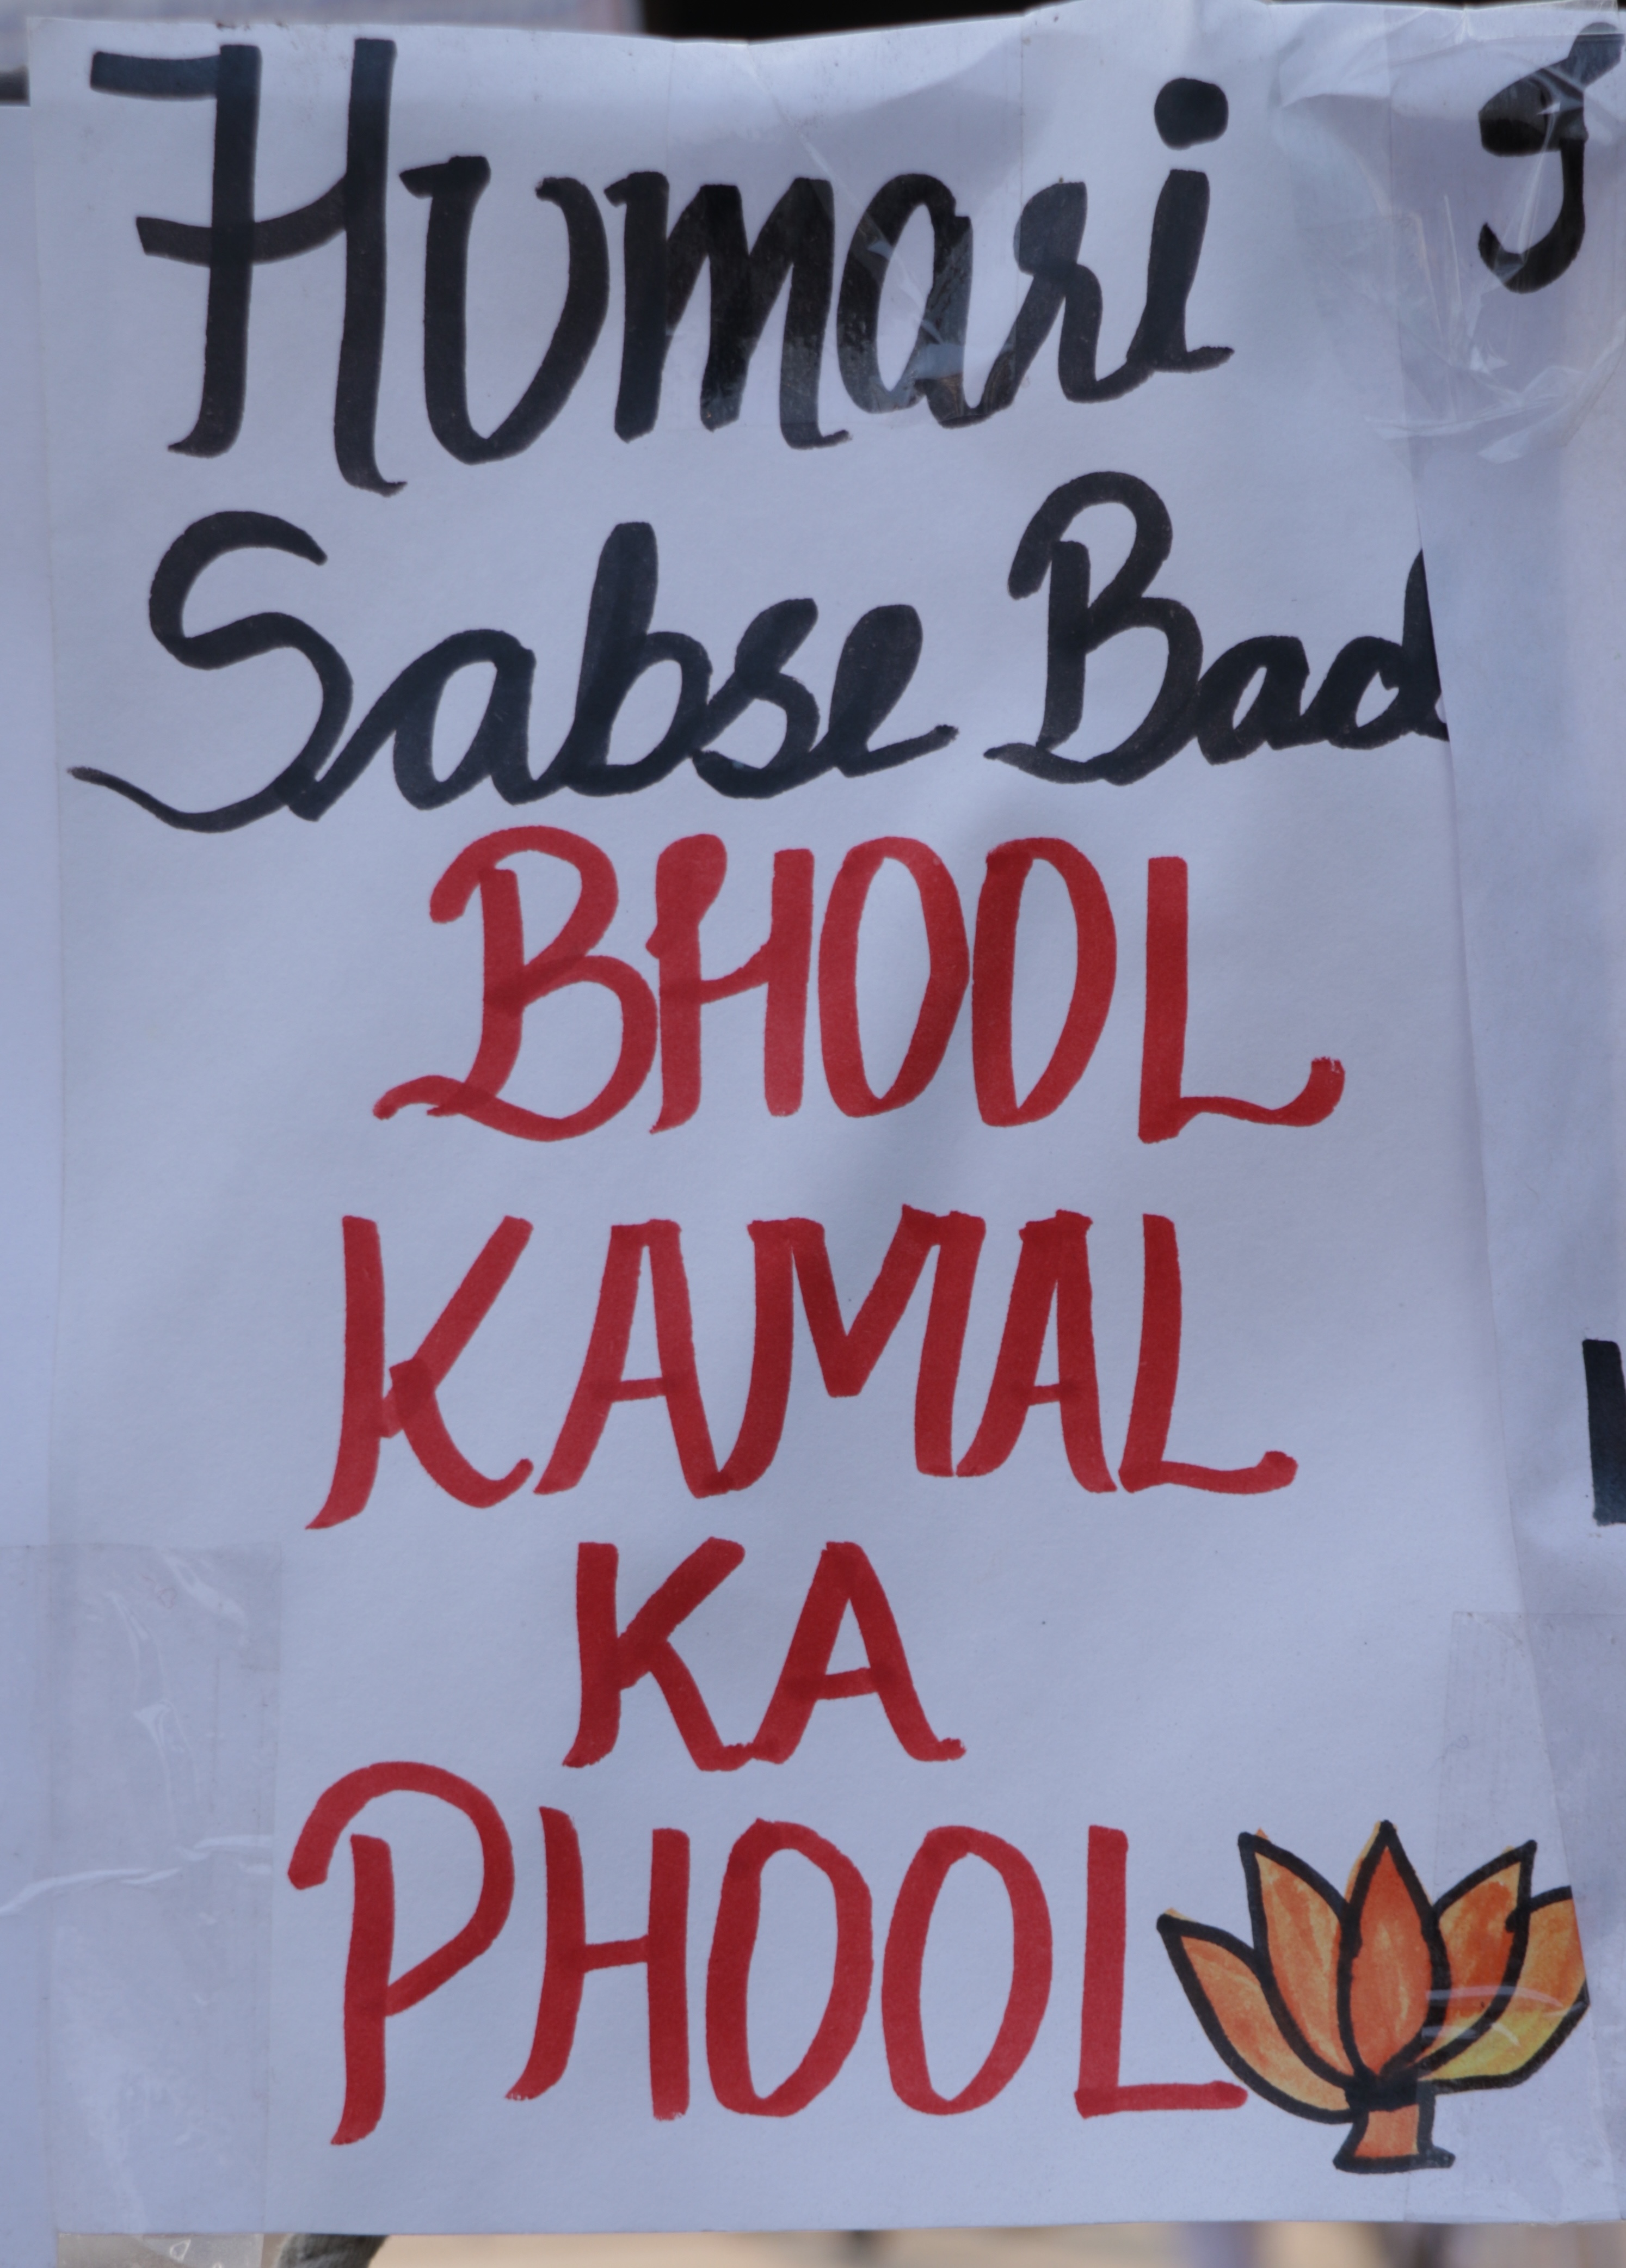 Humari
Sabse Bad
BHOOL
KAMAL
KA
PHOOL